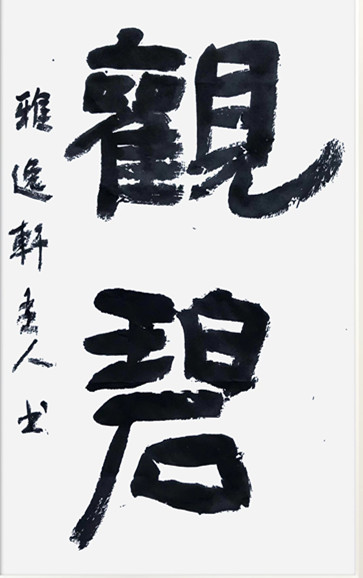 觀碧
雅逸軒主人书